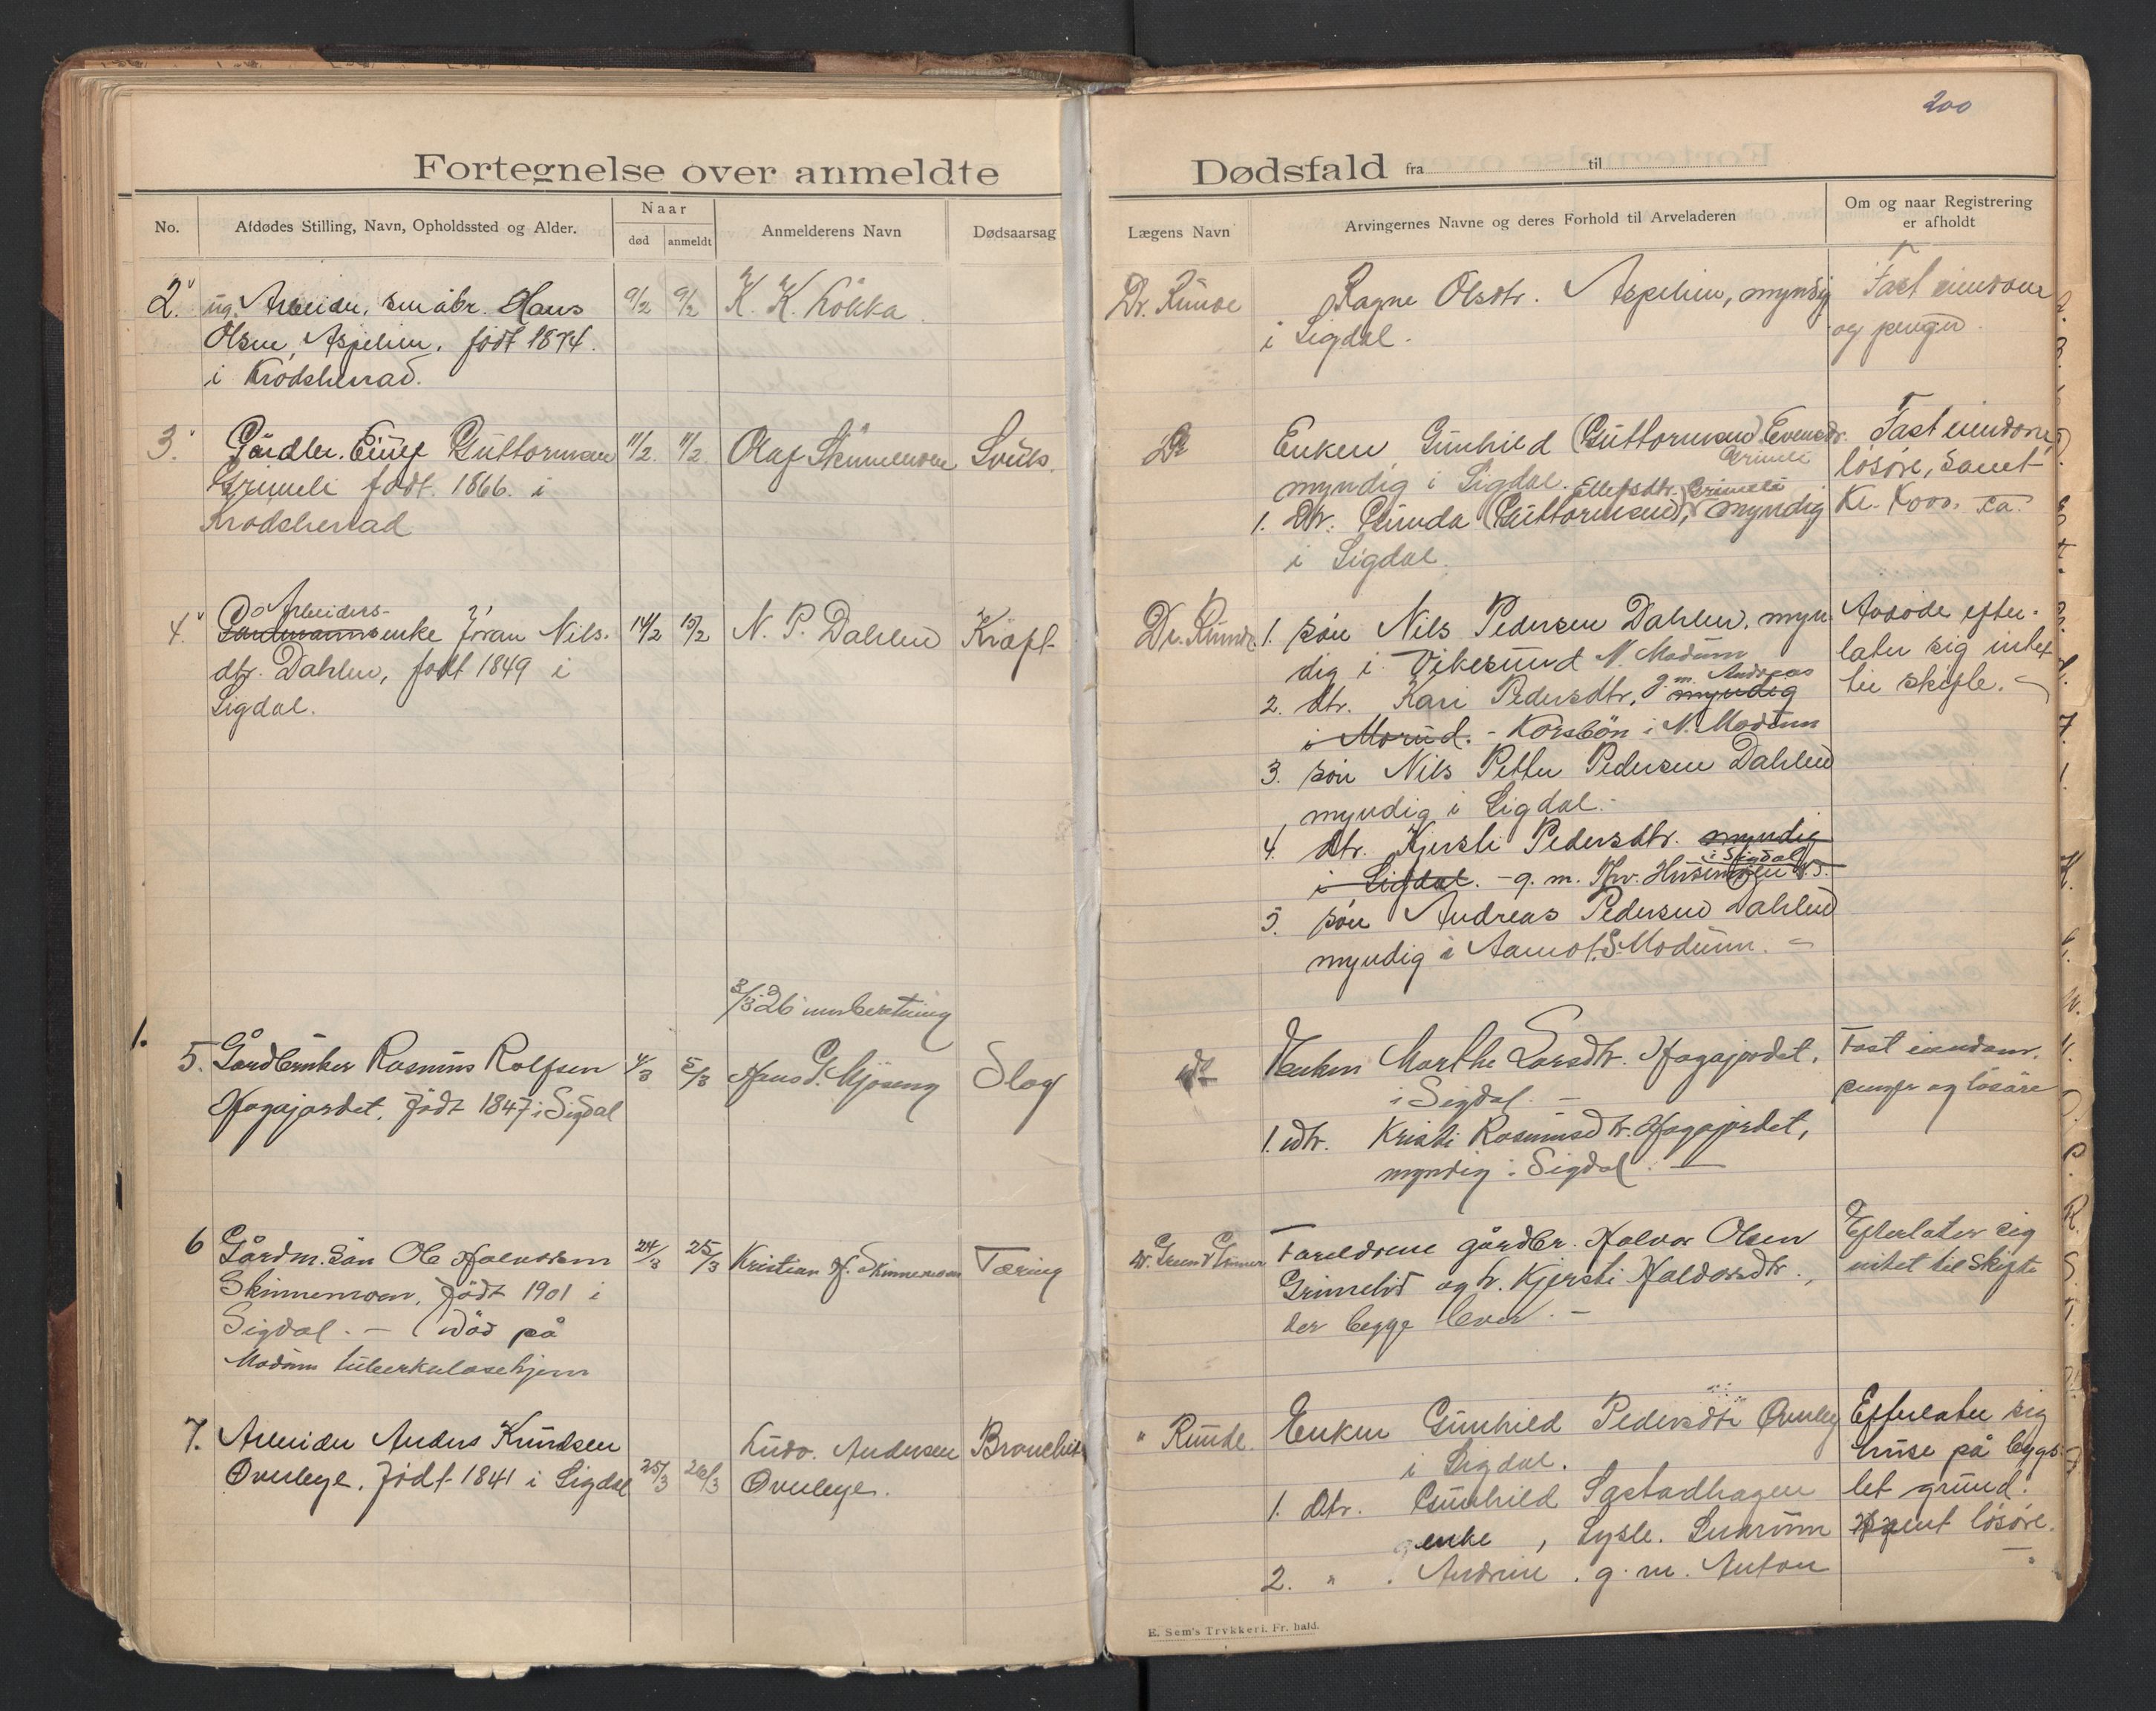 200
Fortegnelse over anmeldte
Dødsfald fra til
No.
Afdødes Stilling, Navn, Opholdssted og Alder.
Naar
død
anmeldt
Anmelderens Navn
Dødsaarsag
Lægens Navn
Arvingernes Navne og deres Forhold til Arveladeren
Om og naar Registrering
er afholdt
2. ug. Arbeider, småbr. Hans 9/2 9/2 K. K. Kokka
Olsen Aspelien, født 1874.
i Krødsherad.
Dr. Runde Ragne Olsdtr. Aspelien, myndig
i Sigdal.
Fast eiendom
og penger.
3. Gårdbr. Guttormsen 11/2. 11/2. Olaf Skinnemoen Svuls.
Grimeli født. 1866. i
Krødsherad
Enken Gunhild (Guttormsen) Evensdtr.
Grimeli
myndig i Sigdal. Ellefsdtr. Grimeli
1. Dtr. Gunda (Guttormsen), myndig
i Sigdal.
Fast eiendom,
løsøre, samt
Kr. ca.
Arbeiders-
4. Gardmannsenke Jøran Nils. 14/2 15/2 N. P. Dahlen Kræft
dtr. Dahlen, født 1849 i
Sigdal.
Dr. Runde 1. søn Nils Pedersen Dahlen, myn-
dig i Vikesund N. Modum
2. dtr. Kari Pedersdtr. g. m. Andreas
myndig
i Morud. - Korsbøn i N. Modum
3. søn Nils Petter Pedersen Dahlen
myndig i Sigdal.
4. dtr. Kjersti Pedersdtr. myndig
i Sigdal
i Sigdal. - g. m. Thv.
5. søn Andreas Pedersen Dahlen
myndig i Aamot, S. Modum. -
Avdøde efter-
later sig intet
til skifte. -
3/3 26 innberetning
1.
5. Gårdbruker Rasmus Rolfsen 4/3 5/3 Hans G. Mjøseng Slag
Hagajordet, født 1847 i Sigdal
do Enken Marthe Larsdtr. Hagajordet,
i Sigdal. -
1. dtr. Kristi Rasmusdtr. Hagajordet,
myndig i Sigdal. -
Fast eiendom.
penger og løsøre
6 Gårdm. søn Ole Halvorsen 24/3 25/3 Kristian H. Skinnemoen Tæring
Skinnemoen, født 1901 i
Sigdal. - (død på
Modum tuberkulosehjem
Foreldrene gårdbr. Halvor Olsen
Grimelid og h. Kjersti Haldorsdtr.,
der begge lever. -
Efterlater sig
intet til skifte
7. Arbeider Anders Knudsen Ludv. Andersen Bronchit
Øverbye. født 1841 i Sigdal 25/3 26/3 Øverbye.
" Runde. Enken Gunhild Pedersdtr Øverby
i Sigdal.
1. dtr. Gunhild Sastadhagen
enke, Lysle. Snarum
2. " . Andrine . g. m. Anton
Efterlater sig
huse på bygs-
let grund.
samt løsøre.
E. Sem's Trykkeri. Fr.hald.